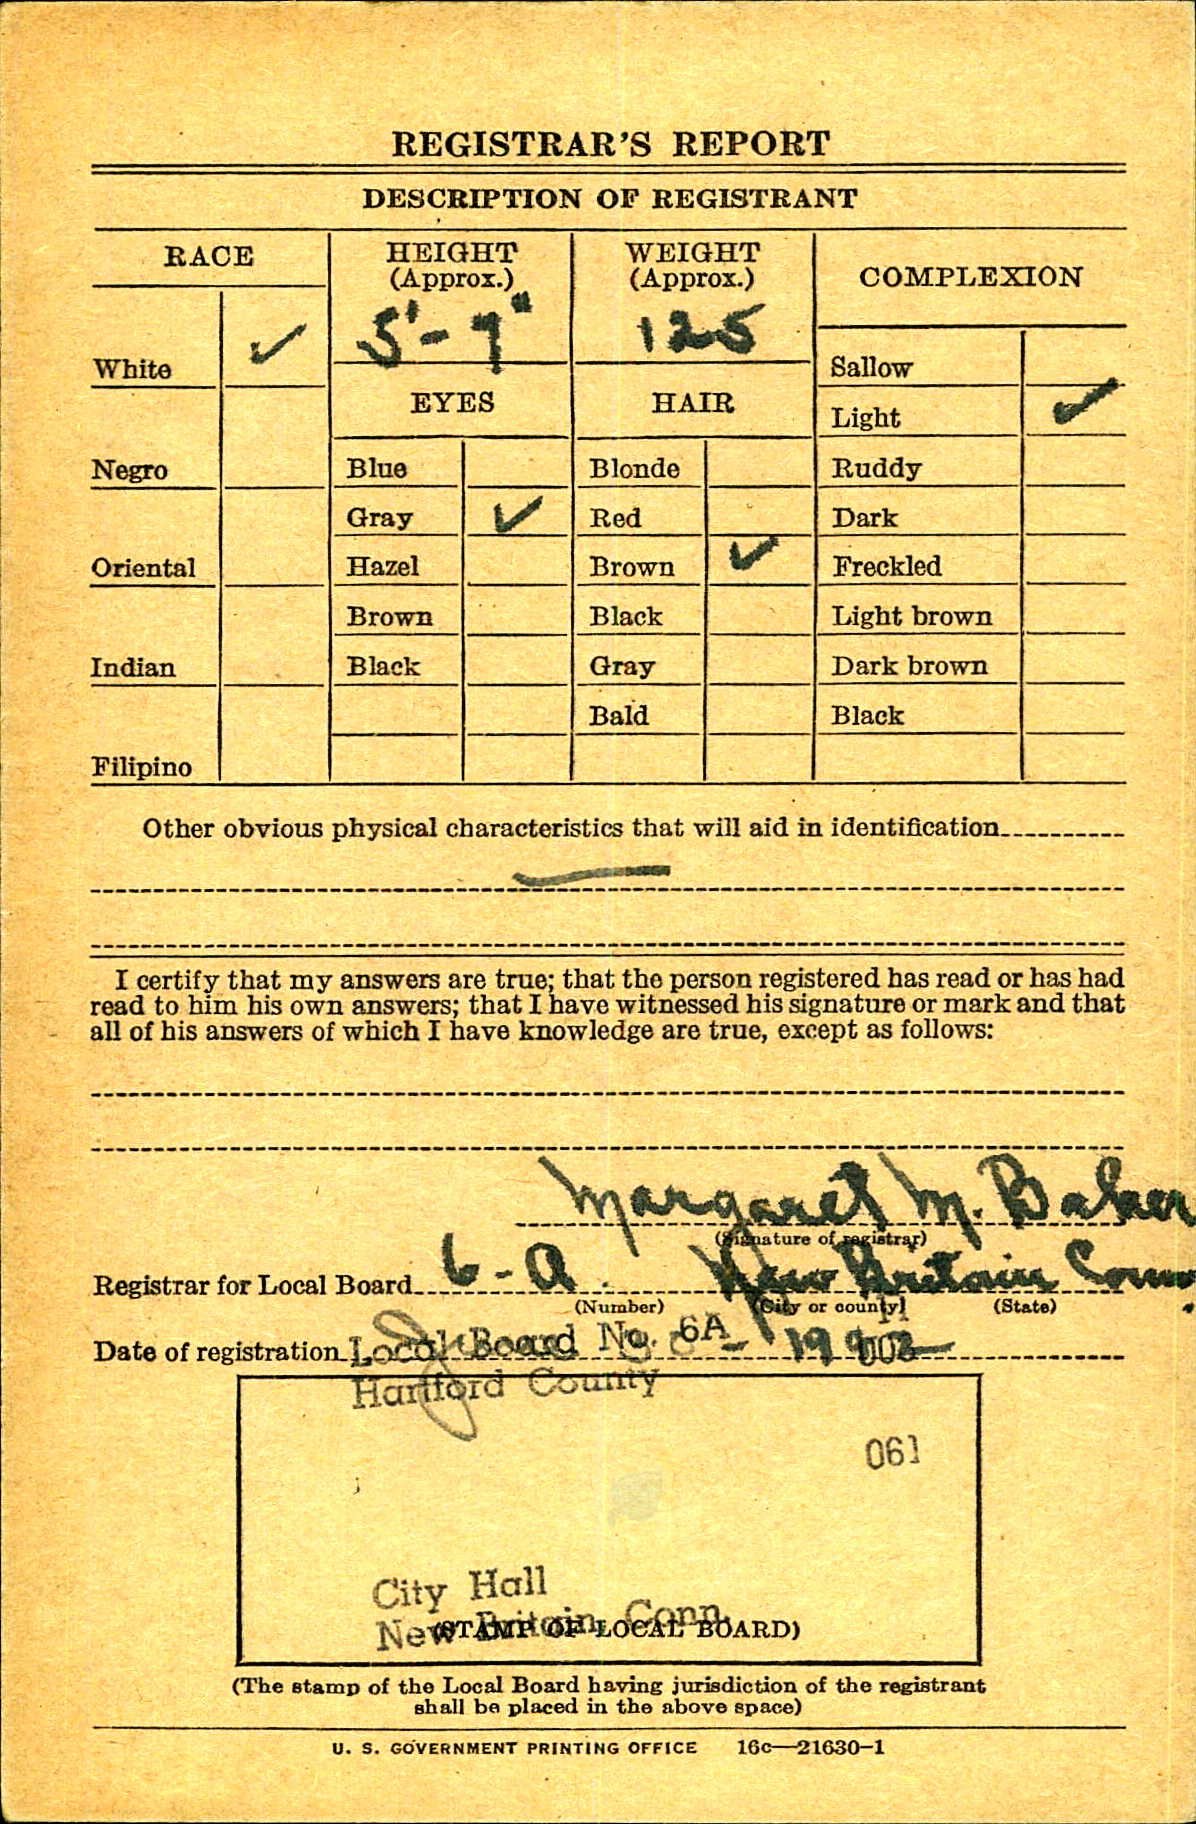 REGISTRAR'S REPORT
DESCRIPTION OF REGISTRANT
RACE
HEIGHT
(Approx.)
WEIGHT
(Approx.)
COMPLEXION
White ✓
5'-7"
125
Sallow
EYES
HAIR
Light ✓
Negro
Blue
Blonde
Ruddy
Gray ✓
Red
Dark
Oriental
Hazel
Brown ✓
Freckled
Brown
Black
Light brown
Indian
Black
Gray
Dark brown
Bald
Black
Filipino
Other obvious physical characteristics that will aid in identification
—
I certify that my answers are true; that the person registered has read or has had
read to him his own answers; that I have witnessed his signature or mark and that
all of his answers of which I have knowledge are true, except as follows:
Margaret M. Baker
(Signature of registrar)
Registrar for Local Board 6-A. New Britain Conn.
(Number) (City or county) (State)
Date of registration
Local Board No. 6A
Hartford County
061
City Hall
New Britain, Conn.
(STAMP OF LOCAL BOARD)
(The stamp of the Local Board having jurisdiction of the registrant
shall be placed in the above space)
U. S. GOVERNMENT PRINTING OFFICE 16c—21630-1